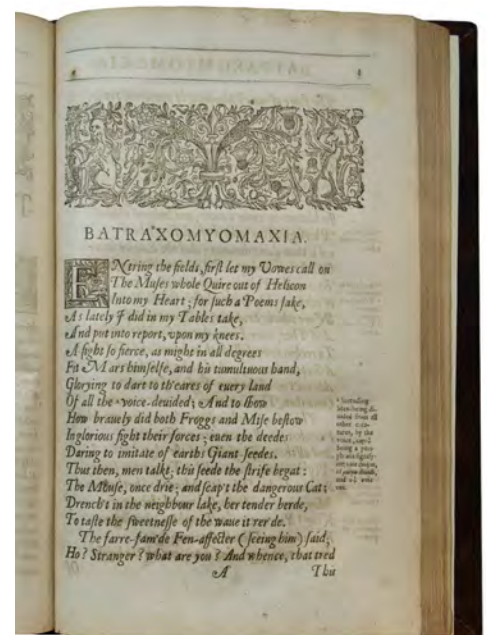 BATRAXOMYOMAXIA.
ENtring the fields, first let my Vowes call on
The Muses whole Quire out of Helicon
Into my Heart; for such a Poems sake,
As lately I did in my Tables take,
And put into report, vpon my knees.
A fight so fierce, as might in all degrees
Fit Mars himselfe, and his tumultuous hand,
Glorying to dare to th'eares of euery land
Of all the voice-deuided; And to show
How brauely did both Froggs and Mise bestow
In glorious fight their forces; euen the deedes
Daring to imitate of earths Giant seedes.
Thus then, men talkt; this seede the strife begat:
The Mouse, once drie; and scap't the dangerous Cat;
Drench't in the neighbour lake, her tender berde,
To taste the sweetnesse of the waue it rer'de.
The farre-fam'de Fen-affecter (seeing him) said,
Ho? Stranger? what are you? And whence, that tred
A
This
Intending
Men: being di-
uided from all
other crea-
tures, by the
voice,
being a